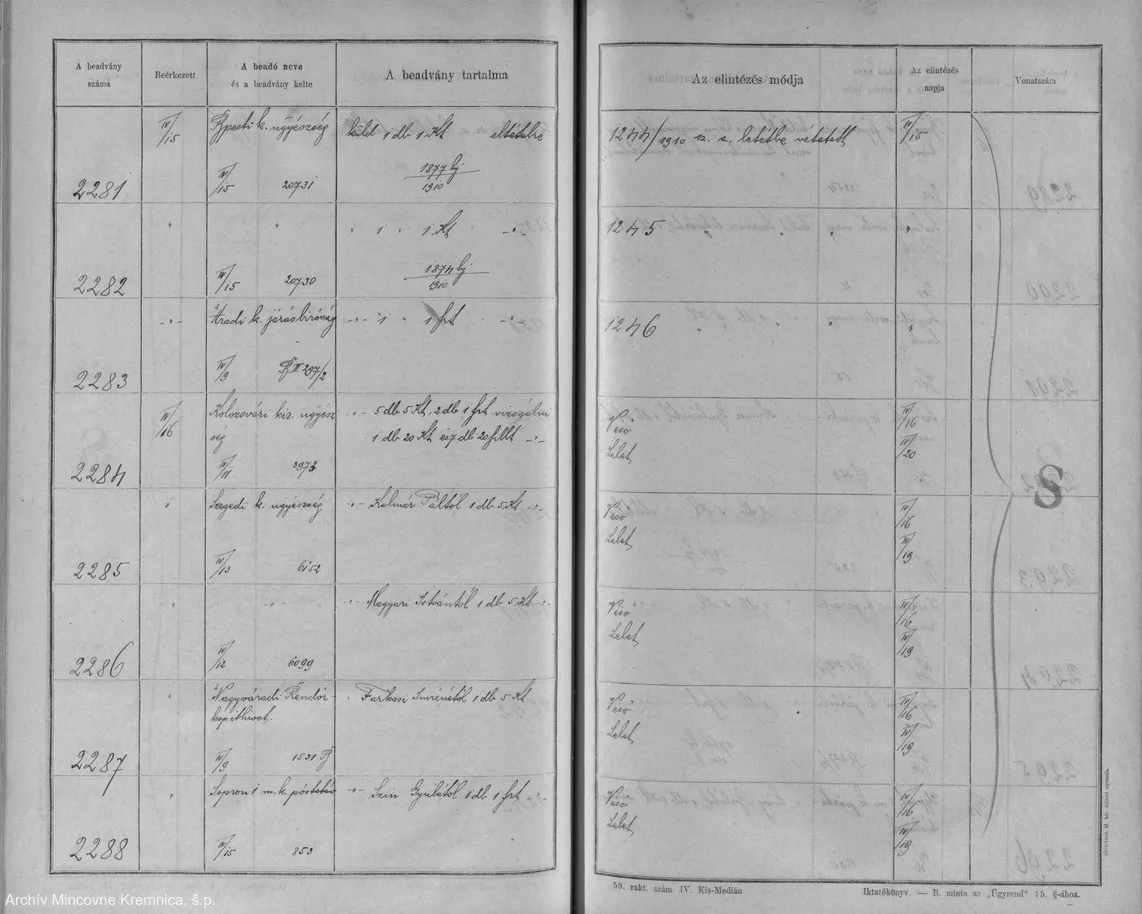 A beadvány
száma
Beérkezett
A beadó neve
és a beadvány kelte
A beadvány tartalma
Az elintézés módja
Az elintézés
napja
Vonatszám
IV/15
Bpesti k. ügyészség
küld 1 db 1 Kt eltételre
1244/1910 sz. a. letétbe vétetett
IV/15
2281
IV/15 20731
1877 Bj
1910
" "
" 1 " 1 Kt -"-
1245 " " " "
2282
IV/15 20730
1874 Bj
1910
-"-
Aradi k. járásbíróság
-"- 1 " 1 frt -"-
1246 " " " "
2283
IV/9 297/2
IV/16
Kolozsvári kir. ügyész
ség
"- 5 db 5 Kt, 2 db 1 frt vizsgálni
1 db 20 Kt és 7 db 20 fillt -"-
Véső IV/16
Lelet IV/20
2284
IV/11 3973
"
Szegedi k. ügyészség
"- Kalmár Páltól 1 db 5 Kt
Véső IV/16
Lelet IV/19
2285
IV/13 6152
" -"-
"- Magyari Istvántól 1 db 5 Kt -"-
Véső IV/16
Lelet IV/19
2286
IV/12 6099
"
Nagyváradi Rendőr-
kapithivat.
" Farkasi Imrénétől 1 db 5 Kt
Véső IV/16
Lelet IV/19
2287
IV/9 1531
"
Sopron 1 m. k. póstatáv
-"- Szin Gyulától 1 db 1 frt -"-
Véső IV/16
Lelet IV/19
2288
IV/15 853
S
59. rakt. szám. IV. Kis-Medián
Iktatókönyv. — B. minta az „Ügyrend" 15. §-ához.
Archív Mincovne Kremnica, š.p.